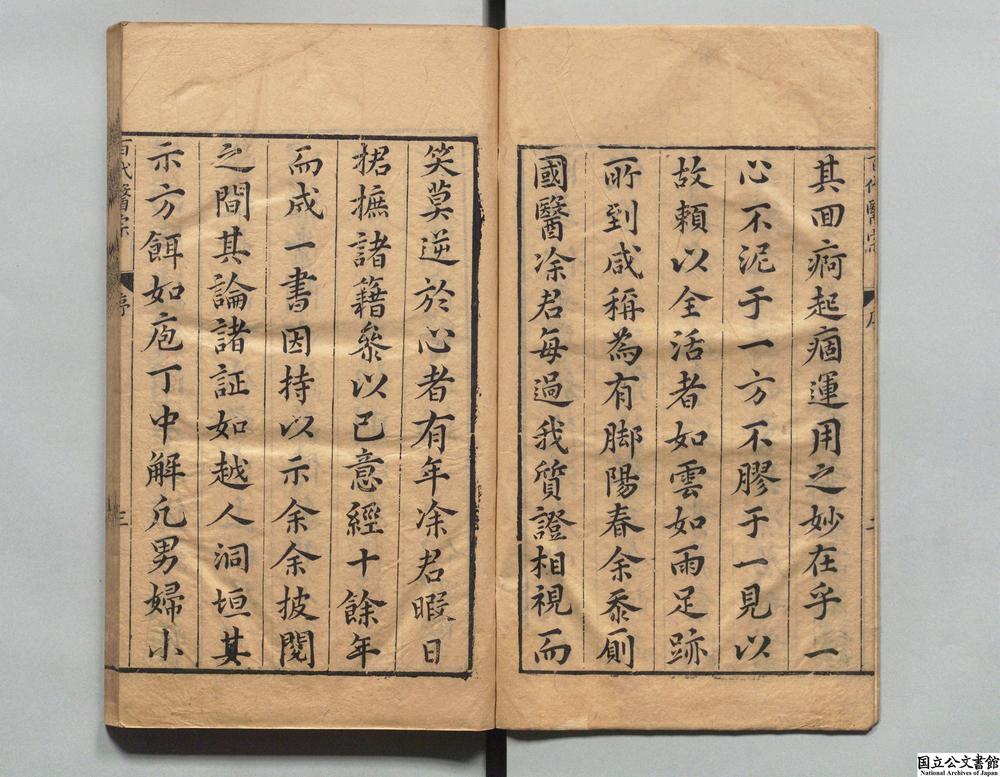 其回痾起痼運用之妙在乎一
心不泥于一方不膠于一見以
故頼以全活者如雲如雨足跡
所到咸稱為有脚陽春余忝厠
國醫凃君每過我質證相視而
笑莫逆於心者有年凃君暇日
捃摭諸籍叅以己意經十餘年
而成一書因持以示余余披閱
之間其論諸証如越人洞垣其
示方餌如庖丁中解凡男婦小
百代醫宗
序
二
百代醫宗
序
三
国立公文書館
National Archives of Japan